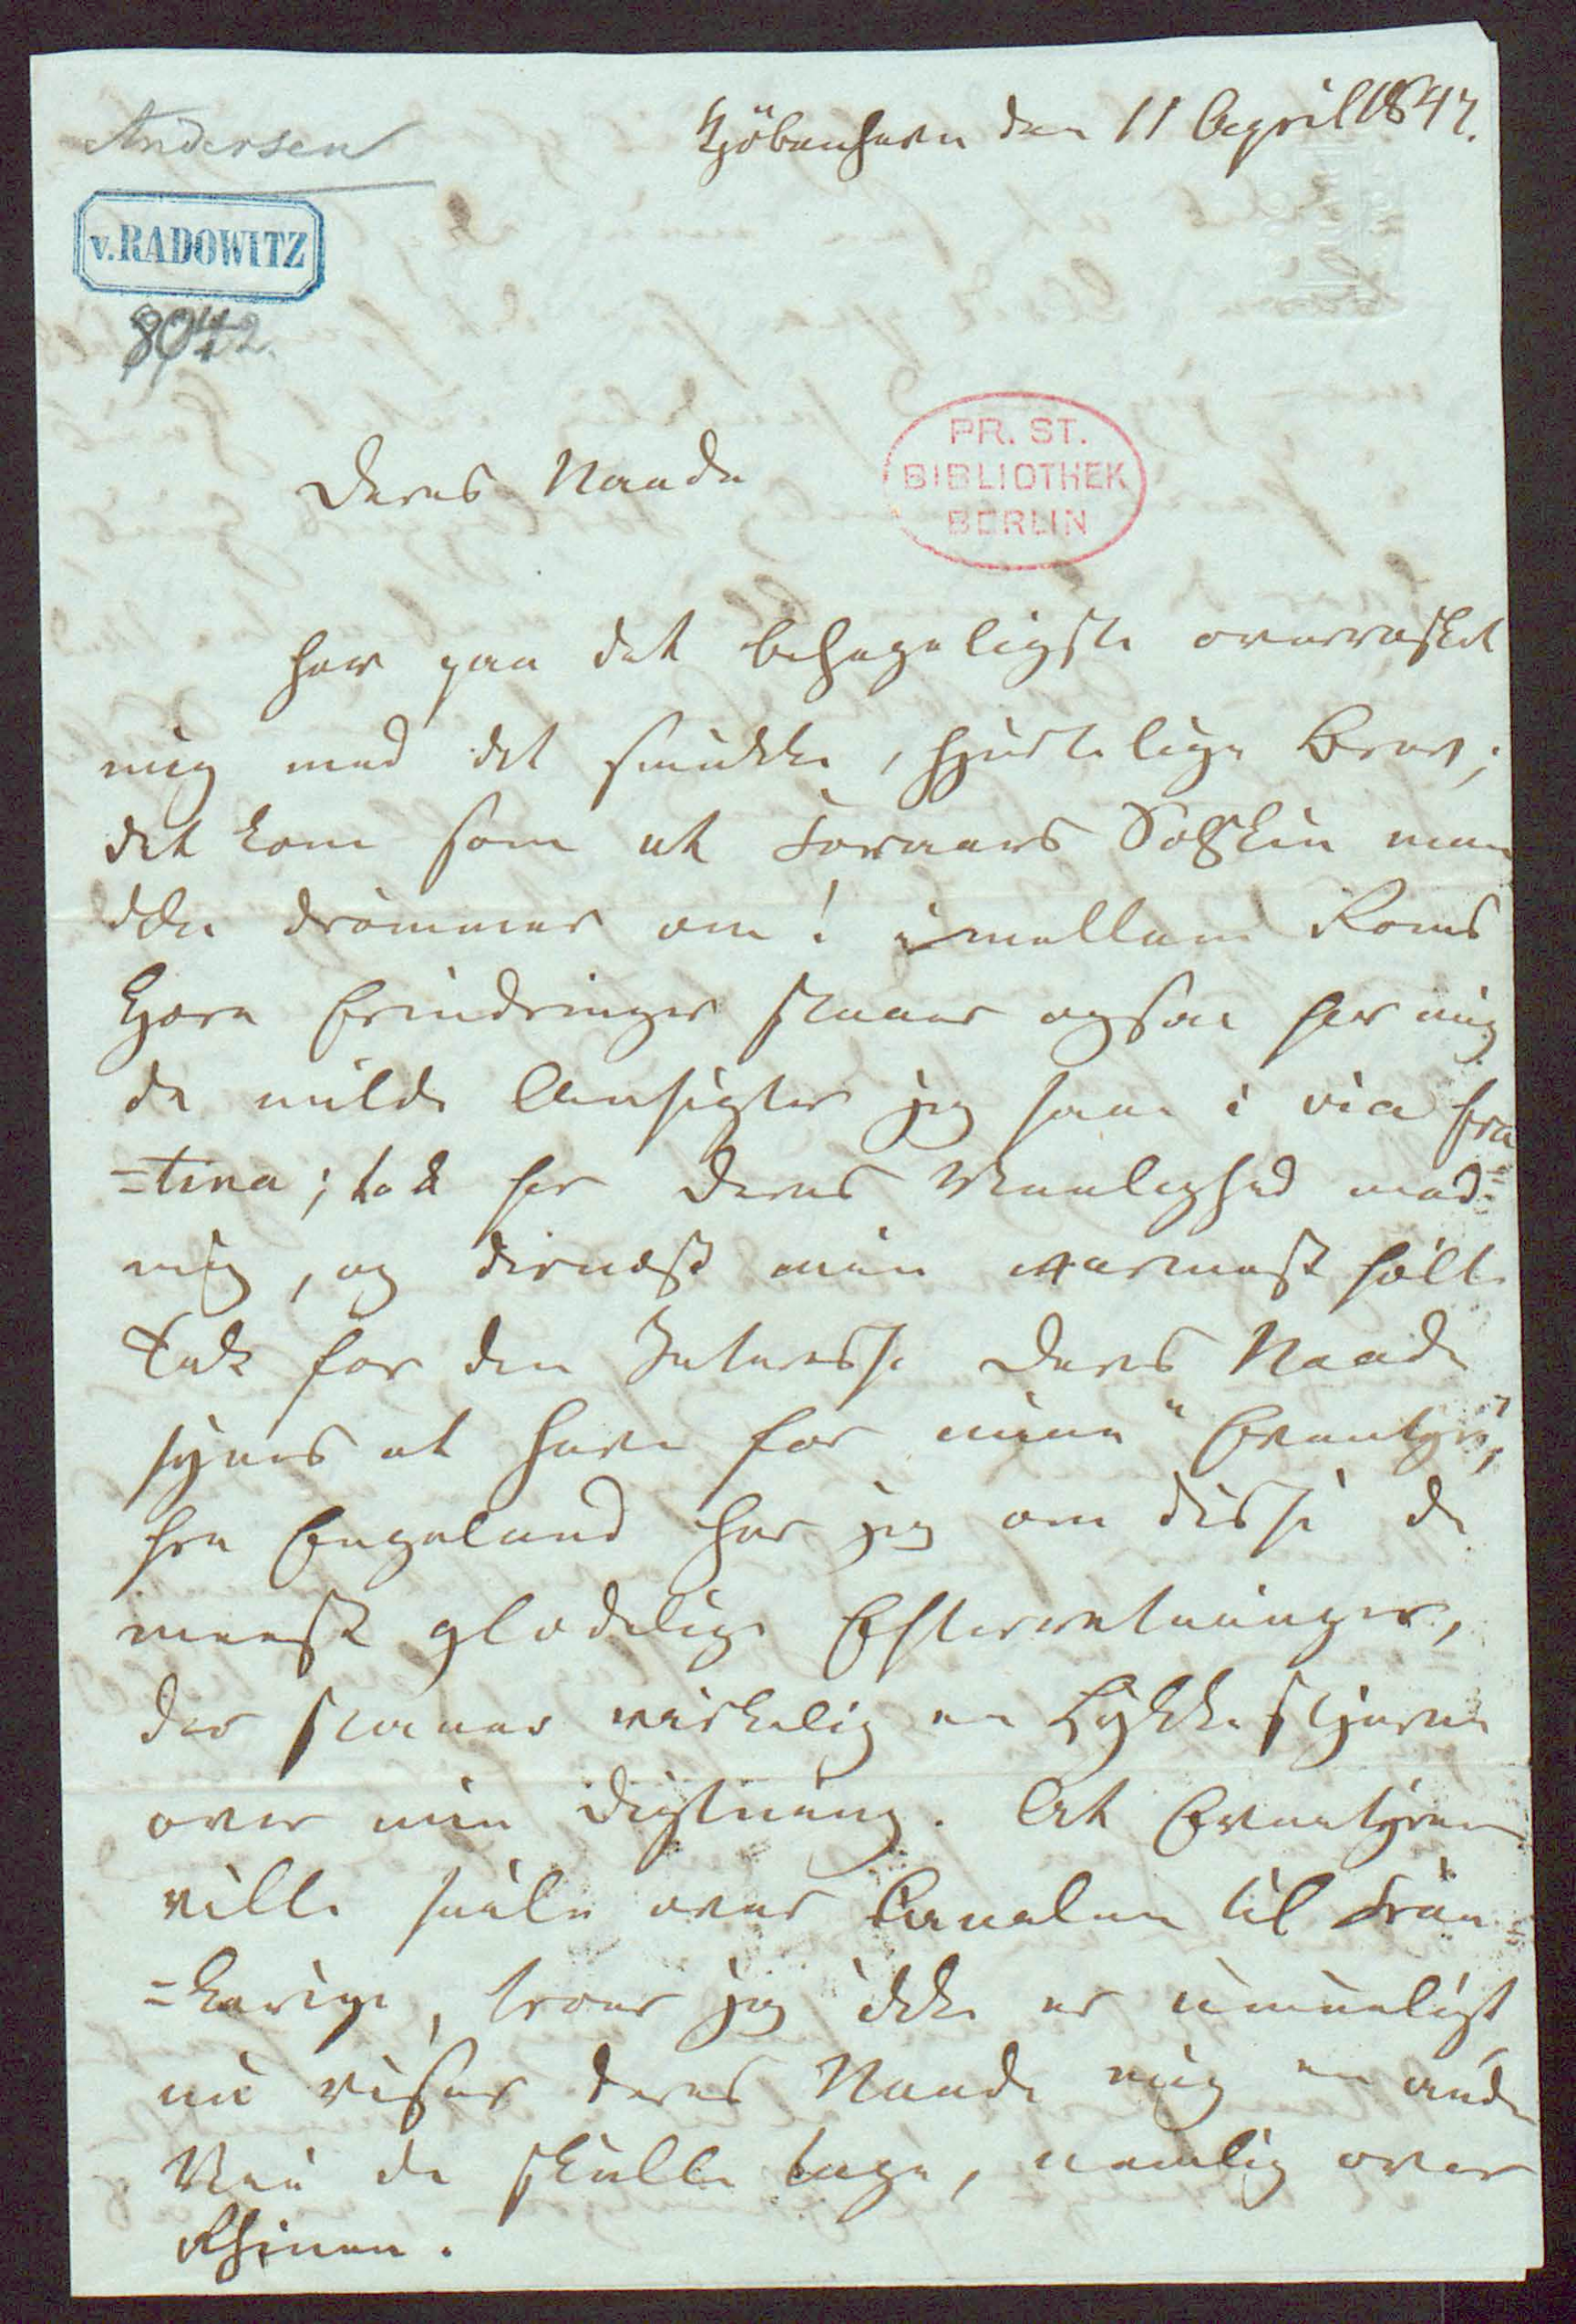 Andersen
Kjöbenhavn den 11 April 1847.
v. RADOWITZ
8042.
PR. ST.
BIBLIOTHEK
BERLIN
Deres Naade
har paa det behageligste overrasket
mig med det smukke, hjertelige Brev;
det kom som et Foraars Solskin man
ikke drömmer om! imellem Roms
Kjære Erindringer staaer ogsaa for mig
de milde Ansigter jeg saae i via fra
=tina; tak for Deres Venlighed mod
mig, og dernæst min varmest fölte
Tak for den Interesse Deres Naade
synes at have for mine "Eventyr",
fra Engeland har jeg om disse de
meest glædelige Efterretninger,
der staaer virkelig en Lykkestjerne
over min Digtning. At Eventyrene
ville seile over Canalen til Fran=
=kerige, troer jeg ikke er umueligt
nu viser Deres Naade mig en anden
Vei de skulle tage, nemlig over
Rhinen.